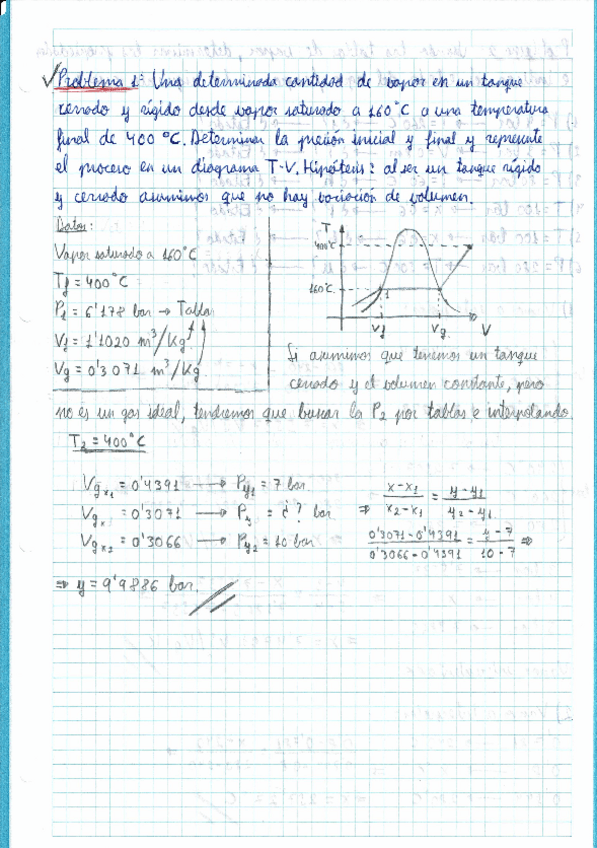 Problema 1: Una determinada cantidad de vapor en un tanque
cerrado y rígido desde vapor saturado a 160°C a una temperatura
final de 400 °C. Determinar la presión inicial y final y represente
el proceso en un diagrama T-V. Hipótesis: al ser un tanque rígido
y cerrado asumimos que no hay variación de volumen.
Datos:
Vapor saturado a 160°C
Tf = 400°C
P1 = 6'178 bar → Tablas
Vf = 1'1020 m³/Kg
Vg = 0'3071 m³/Kg
T
400°C
160°C
1
Vf Vg V
Si asumimos que tenemos un tanque
cerrado y el volumen constante, pero
no es un gas ideal, tendremos que buscar la P2 por tablas e interpolando
T2 = 400°C
Vgx1 = 0'4391 → Py1 = 7 bar
Vgx = 0'3071 → Py = ¿? bar
Vgx2 = 0'3066 → Py2 = 10 bar
⇒ x-x1 / x2-x1 = y-y1 / y2-y1
0'3071-0'4391 / 0'3066-0'4391 = y-7 / 10-7 ⇒
⇒ y = 9'9886 bar.